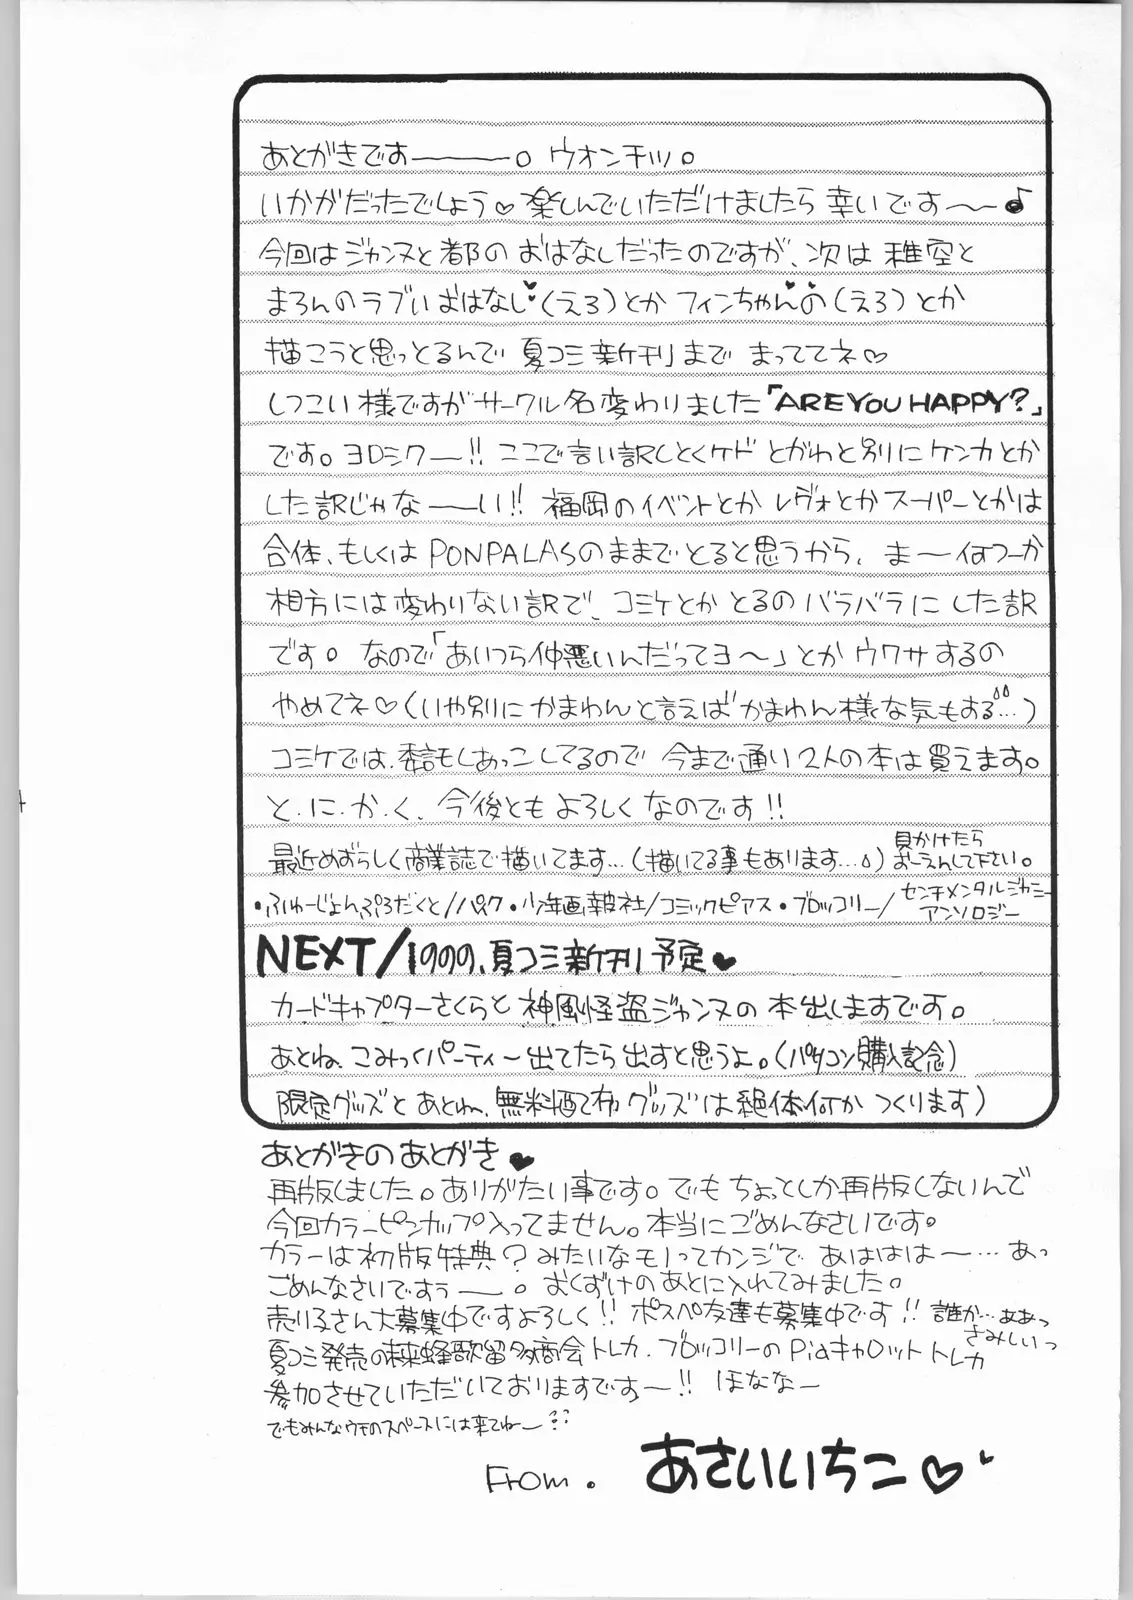 あとがきです———。ウオンチッ。
いかがだったでしょう♡楽しんでいただけましたら幸いです〜♪
今回はジャンヌと都のおはなしだったのですが、次は稚空と
まろんのラブいおはなし♥(えろ)とかフィンちゃんの(えろ)とか
描こうと思っとるんで夏コミ新刊までまっててネ♡
しつこい様ですがサークル名変わりました「ARE YOU HAPPY?」
です。ヨロシクー!!ここで言い訳しとくケドとがわと別にケンカとか
した訳じゃな——い!!福岡のイベントとかレヴォとかスーパーとかは
合体、もしくはPONPALASのままでとると思うから、ま〜何つーか
相方には変わりない訳で、コミケとかとるのバラバラにした訳
です。なので「あいつら仲悪いんだってヨ〜」とかウワサするの
やめてネ♡(いや別にかまわんと言えばかまわん様な気もする…)
コミケでは、委託しあっこしてるので今まで通り2人の本は買えます。
と.に.か.く、今後ともよろしくなのです!!
最近めずらしく商業誌で描いてます…(描いてる事もあります…)見かけたらおーえんして下さい。
・ふゅーじょんぷろだくと/パック・少年画報社/コミックピアス・ブロッコリー/センチメンタルジャニーアンソロジー
NEXT/1999、夏コミ新刊予定♥
カードキャプターさくらと神風怪盗ジャンヌの本出しますです。
あとね、こみっくパーティー出てたら出すと思うよ。(パソコン購入記念)
限定グッズとあとね、無料配布グッズは絶体何かつくります)
あとがきのあとがき♥
再版しました。ありがたい事です。でもちょっとしか再版しないんで
今回カラーピンナップ入ってません。本当にごめんなさいです。
カラーは初版特典?みたいなモノってカンジであははは〜…あっ
ごめんなさいですぅ—。おくずけのあとに入れてみました。
売り子さん大募集中ですよろしく!!ポスペ友達も募集中です!!誰か…ああっさみしいっ
夏コミ発売の未来蜂歌留多商会トレカ.ブロッコリーのPiaキャロットトレカ
参加させていただいておりますです—!!ほななー
でもみんなウチのスペースには来てねー
From. あさいいちこ♡